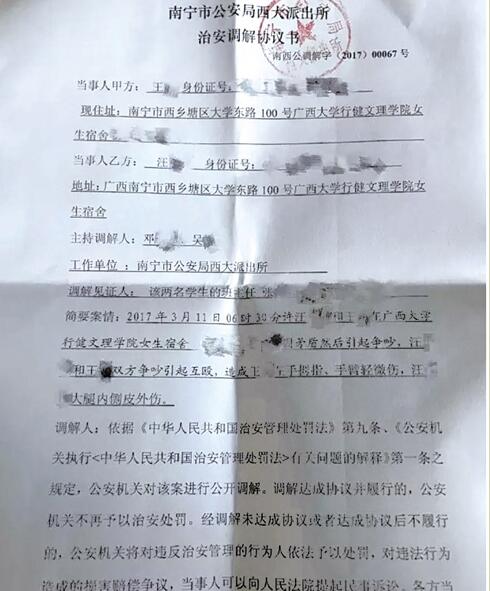 南宁市公安局西大派出所
治安调解协议书
南西公调解字（2017）00067 号
当事人甲方： 王 身份证号：
现住址：南宁市西乡塘区大学东路 100 号广西大学行健文理学院女
生宿舍
当事人乙方： 汪 身份证号：
地址：广西南宁市西乡塘区大学东路 100 号广西大学行健文理学院女
生宿舍
主持调解人： 邓 、吴
工作单位 ：南宁市公安局西大派出所
调解见证人： 该两名学生的班主任 张
简要案情：2017 年 3 月 11 日 06 时 30 分许汪 和王 在广西大学
行健文理学院女生宿舍 因矛盾然后引起争吵，汪
和王 双方争吵引起互殴，造成王 左手拇指、手臂轻微伤，汪
大腿内侧皮外伤。
调解人：依据《中华人民共和国治安管理处罚法》第九条、《公安机
关执行<中华人民共和国治安管理处罚法>有关问题的解释》第一条之
规定，公安机关对该案进行公开调解。调解达成协议并履行的，公安
机关不再予以治安处罚。经调解未达成协议或者达成协议后不履行
的，公安机关将对违反治安管理的行为人依法予以处罚，对违法行为
造成的损害赔偿争议，当事人可以向人民法院提起民事诉讼。各方当